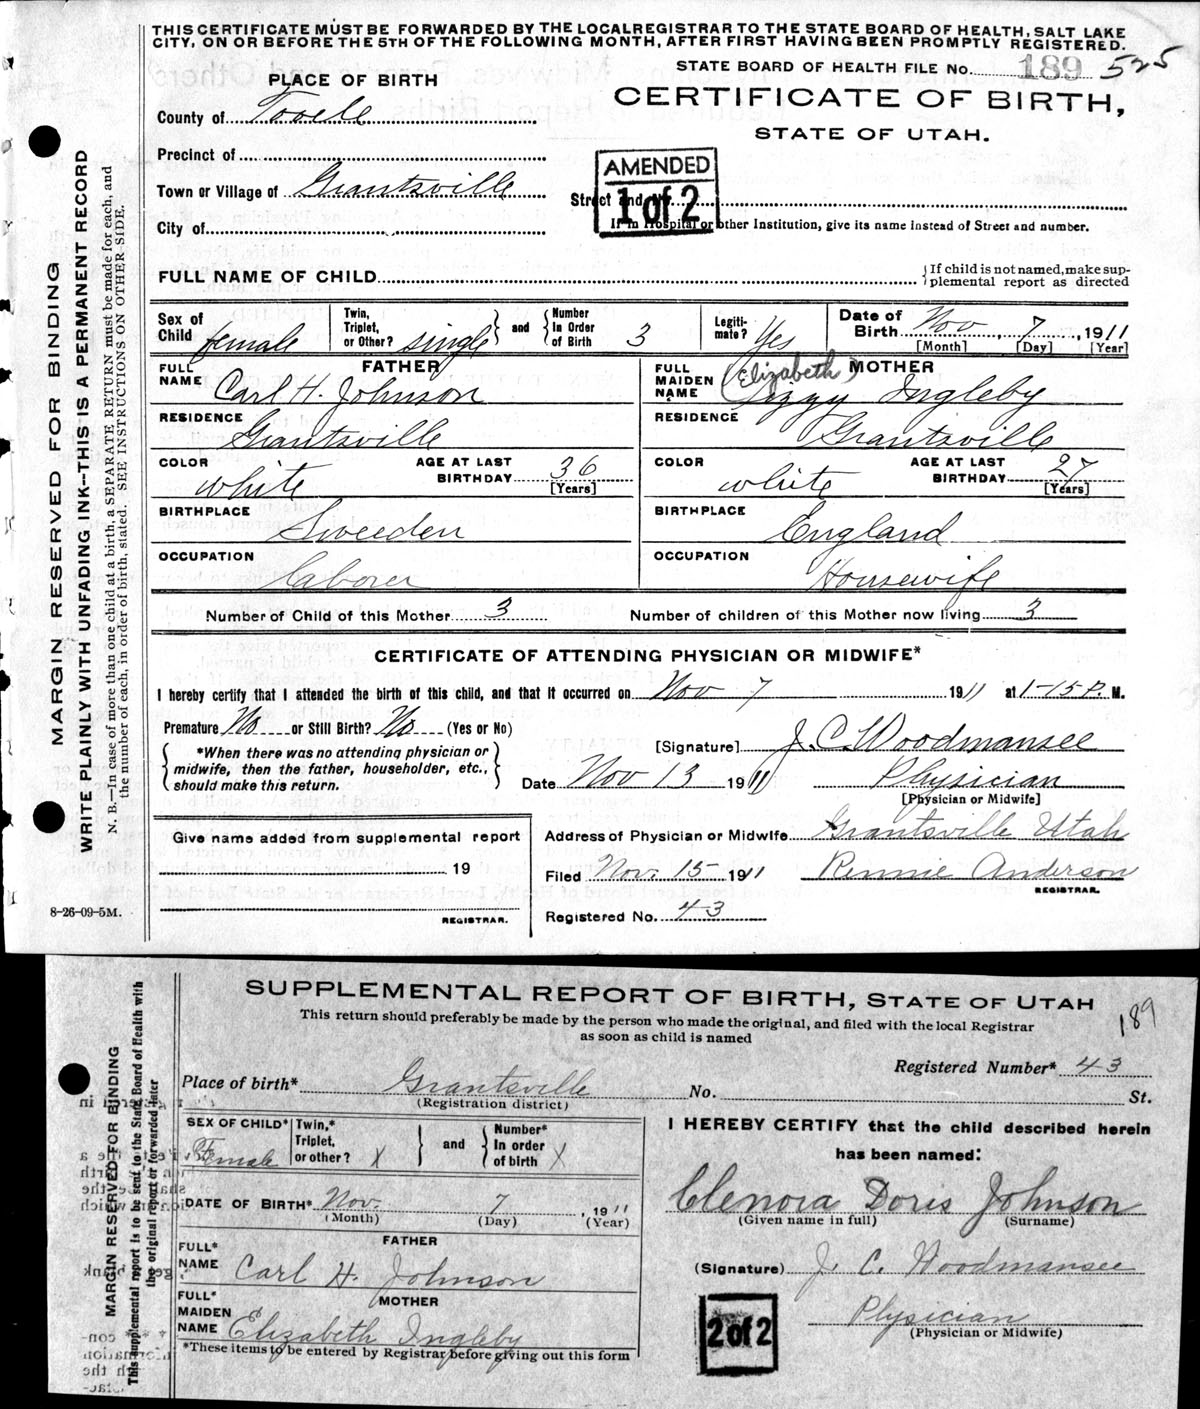 THIS CERTIFICATE MUST BE FORWARDED BY THE LOCAL REGISTRAR TO THE STATE BOARD OF HEALTH, SALT LAKE
CITY, ON OR BEFORE THE 5TH OF THE FOLLOWING MONTH, AFTER FIRST HAVING BEEN PROMPTLY REGISTERED.
STATE BOARD OF HEALTH FILE No. 189 525
PLACE OF BIRTH
CERTIFICATE OF BIRTH,
STATE OF UTAH.
County of Tooele
Precinct of
Town or Village of Grantsville
City of
AMENDED
1 of 2
Street and No.
If in Hospital or other Institution, give its name instead of Street and number.
FULL NAME OF CHILD
{If child is not named, make sup-
plemental report as directed
Sex of Child female
Twin, Triplet, or Other? single } and { Number In Order of Birth 3
Legiti-mate? Yes
Date of Birth Nov 7, 1911
[Month] [Day] [Year]
FATHER
FULL NAME Carl H. Johnson
RESIDENCE Grantsville
COLOR white AGE AT LAST BIRTHDAY 36 [Years]
BIRTHPLACE Sweeden
OCCUPATION laborer
MOTHER
FULL MAIDEN NAME (Elizabeth) Lizzy Ingleby
RESIDENCE Grantsville
COLOR white AGE AT LAST BIRTHDAY 27 [Years]
BIRTHPLACE England
OCCUPATION Housewife
Number of Child of this Mother 3 Number of children of this Mother now living 3
CERTIFICATE OF ATTENDING PHYSICIAN OR MIDWIFE*
I hereby certify that I attended the birth of this child, and that it occurred on Nov 7 1911 at 1-15 P. M.
Premature No or Still Birth? No (Yes or No)
{*When there was no attending physician or
midwife, then the father, householder, etc.,
should make this return.}
[Signature] J. C. Woodmansee
Date Nov 13 1911 Physician
[Physician or Midwife]
Give name added from supplemental report
19
REGISTRAR.
Address of Physician or Midwife Grantsville Utah
Filed Nov. 15 1911 Rennie Anderson
REGISTRAR.
Registered No. 43
8-26-09-5M.
MARGIN RESERVED FOR BINDING
WRITE PLAINLY WITH UNFADING INK--THIS IS A PERMANENT RECORD
N. B.—In case of more than one child at a birth, a SEPARATE RETURN must be made for each, and
the number of each, in order of birth, stated. SEE INSTRUCTIONS ON OTHER SIDE.
SUPPLEMENTAL REPORT OF BIRTH, STATE OF UTAH
This return should preferably be made by the person who made the original, and filed with the local Registrar
as soon as child is named
189
Registered Number* 43
Place of birth* Grantsville No. St.
(Registration district)
SEX OF CHILD* Female
Twin,* Triplet, or other? X } and { Number* In order of birth X
DATE OF BIRTH* Nov. 7, 1911
(Month) (Day) (Year)
FATHER
FULL* NAME Carl H. Johnson
MOTHER
FULL* MAIDEN NAME Elizabeth Ingleby
*These items to be entered by Registrar before giving out this form
I HEREBY CERTIFY that the child described herein
has been named:
Clenora Doris Johnson
(Given name in full) (Surname)
(Signature) J. C. Woodmansee
Physician
(Physician or Midwife)
2 of 2
MARGIN RESERVED FOR BINDING
This supplemental report is to be sent to the State Board of Health with
the original report or forwarded later